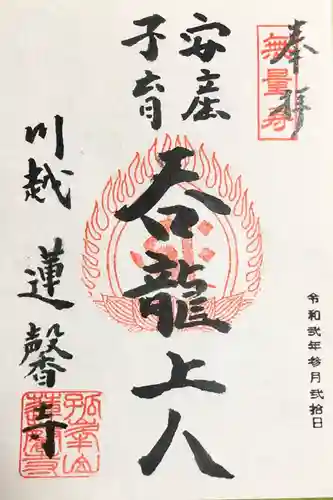 奉拝
無量寿
安産
子育
呑龍上人
川越
蓮馨寺
令和弐年参月弐拾日